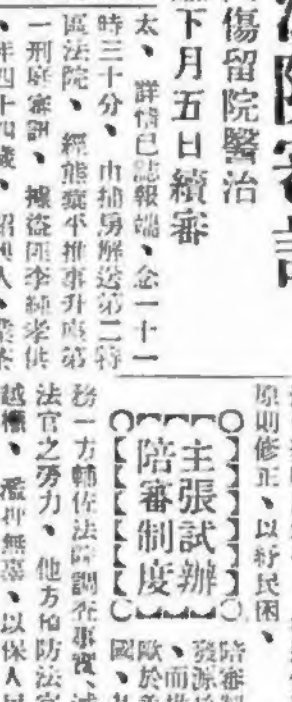 傷留院醫治
下月五日續審
太、詳情已誌報端、念一十一
時三十分、由捕房解送第二特
區法院、經熊彙平推事升座第
一刑庭審訊、據盜匪李純孝供
年四十四歲、紹興人、業
原則修正、以紓民困、
主張試辦
陪審制度
陪審制
發源於
、而推
歐於
國、
務一方輔佐法院調查事實、減
法官之勞力、他方預防法官
越權、濫押無辜、以保人民